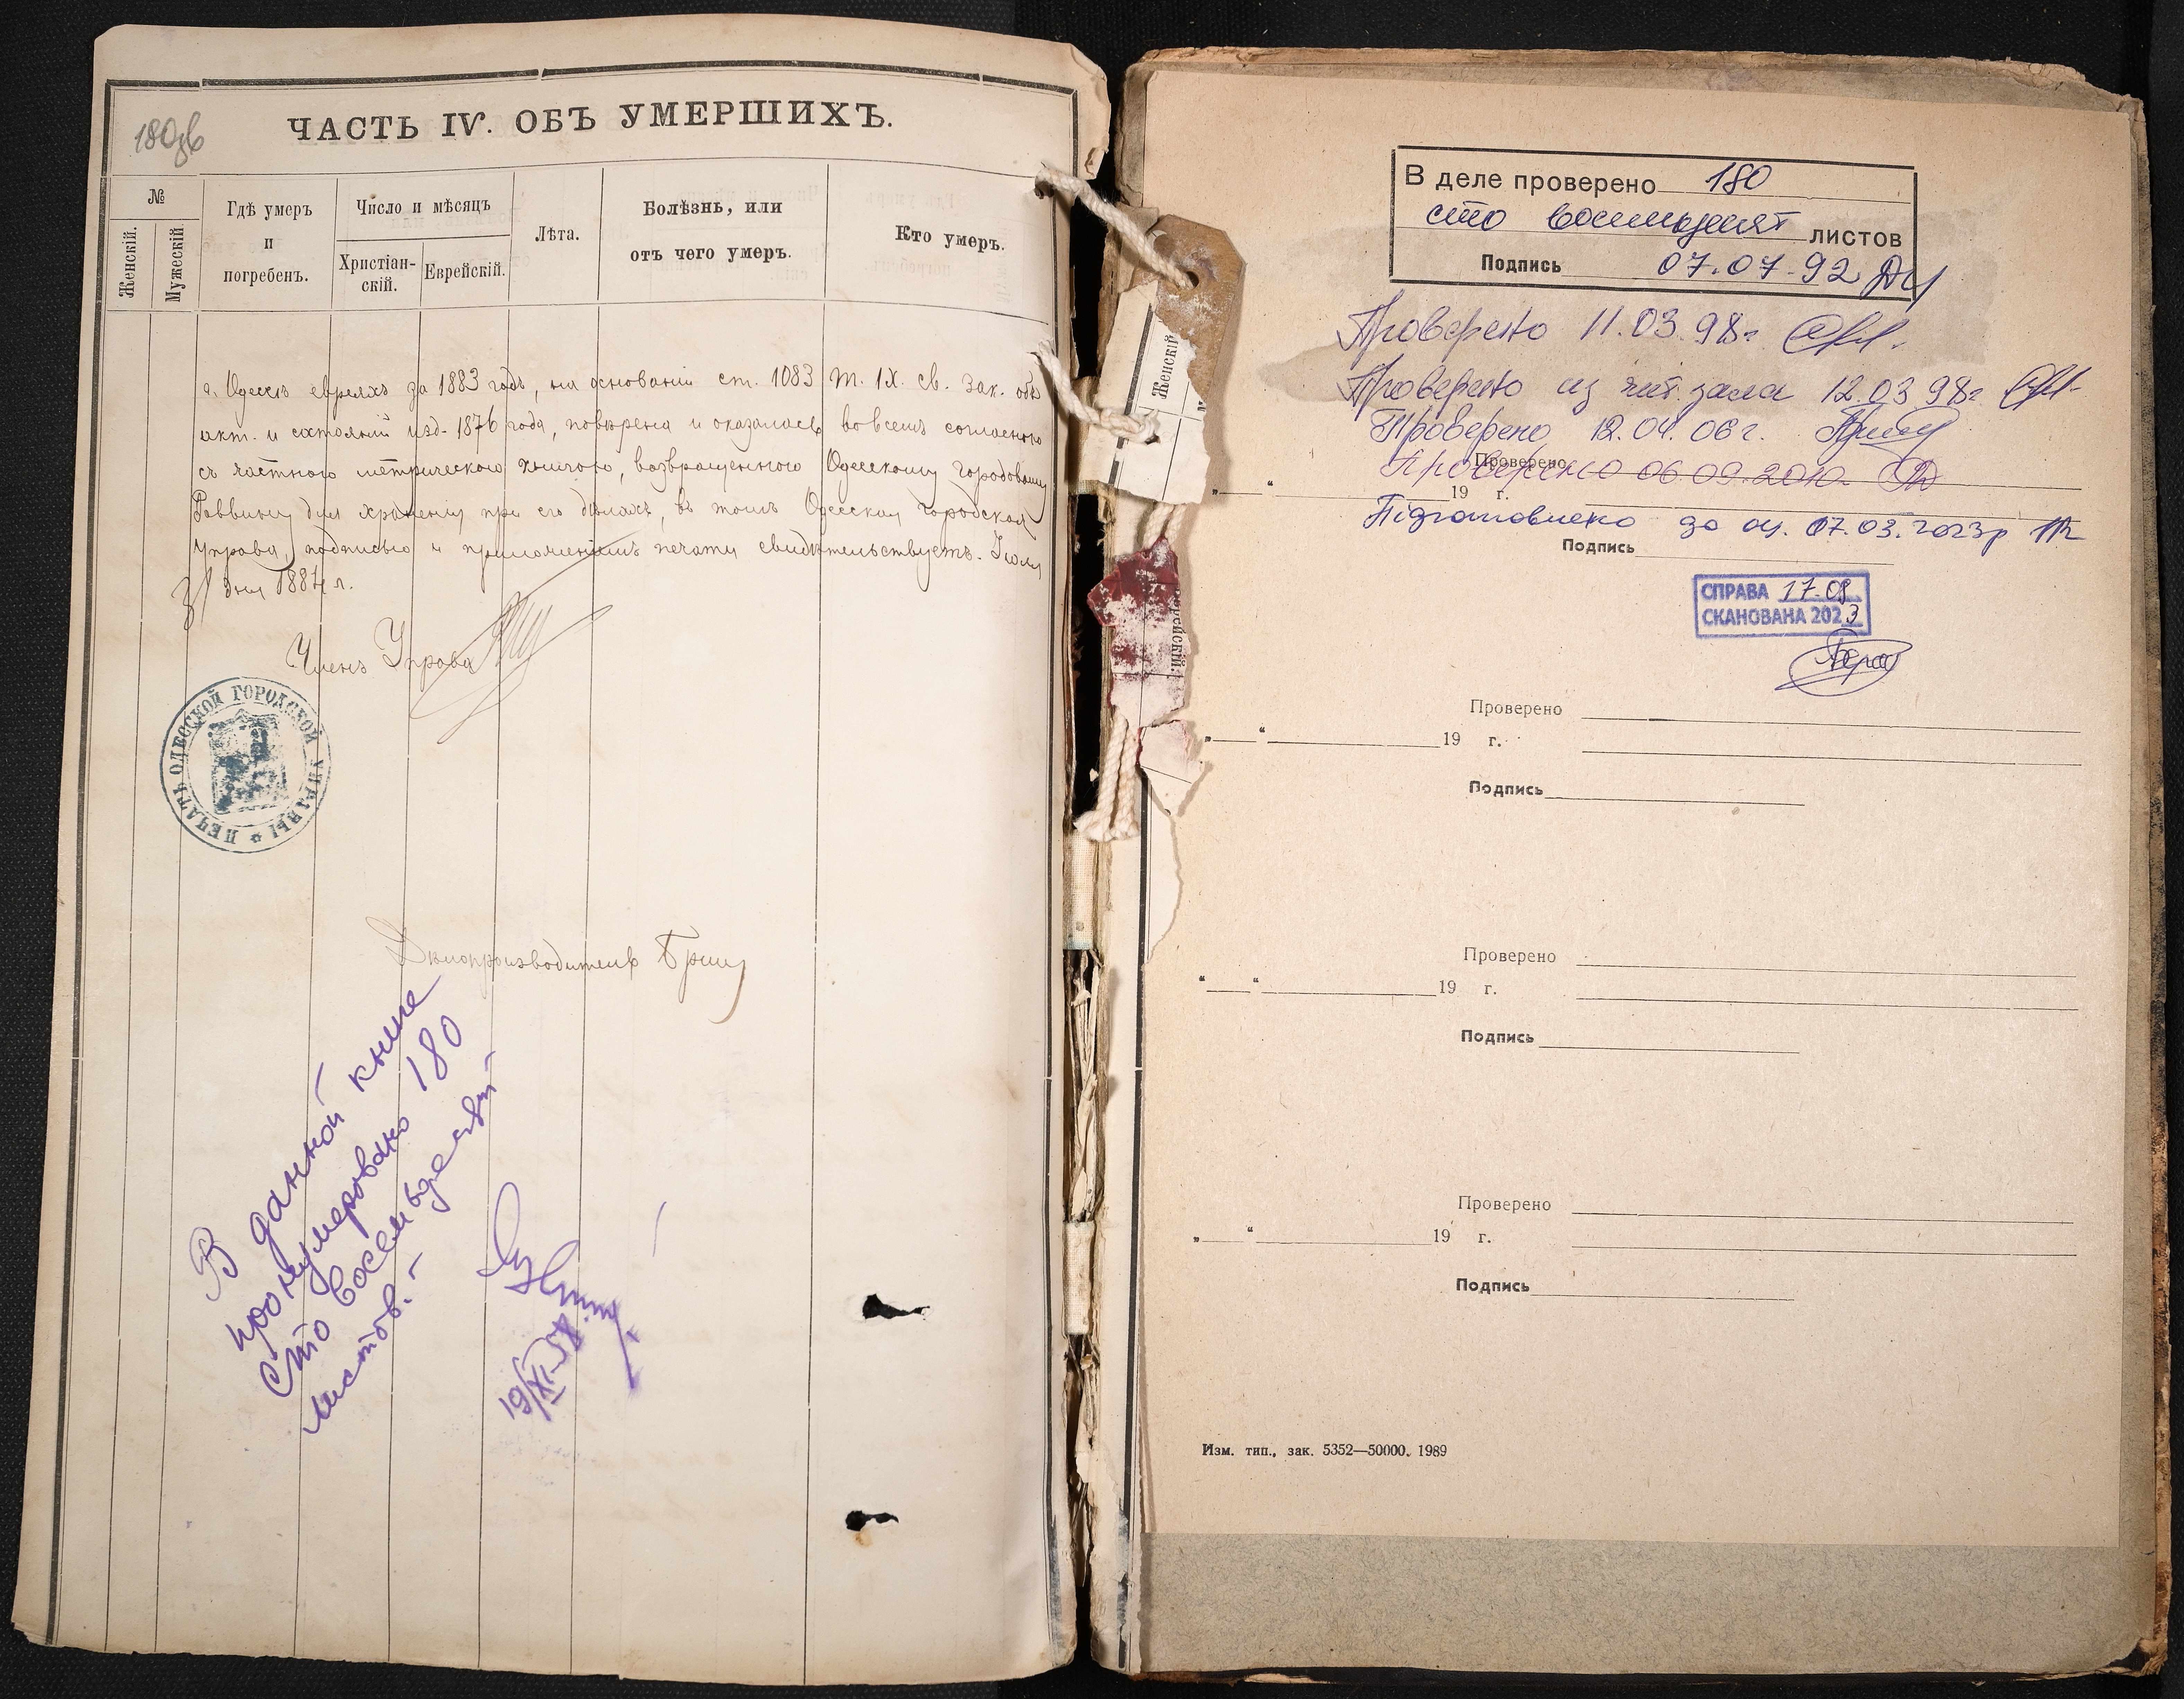 180об
ЧАСТЬ IV. ОБЪ УМЕРШИХЪ.
№
Женскій.
Мужескій.
Гдѣ умеръ
и
погребенъ.
Число и мѣсяцъ
Христіан-
скій.
Еврейскій.
Лѣта.
Болѣзнь, или
отъ чего умеръ.
Кто умеръ.
г. Одессѣ евреяхъ за 1883 годъ, на основаніи ст. 1083 т. IX. св. зак. объ
акт. и состояній изд. 1876 года, повѣрена и оказалась во всемъ согласною
съ частною метрическою книгою, возвращенною Одесскому Городовому
Раввину для храненія при его дѣлахъ, въ томъ Одесская Городская
Управа, подписью и приложеніемъ печати свидѣтельствуетъ. Іюля
31 дня 1884 г.
Членъ Управы
ПЕЧАТЬ ОДЕССКОЙ ГОРОДСКОЙ УПРАВЫ
Дѣлопроизводитель
В данной книге
пронумеровано 180
сто восемьдесят
листов.-
19/XI-58
Женскій
В деле проверено 180
сто восемьдесят листов
Подпись 07.07-92
Проверено 11.03.98г.
Проверено из чит. зала 12.03 98г
Проверено 12.04.06 г.
Проверено
Проверено 06.09.2010.
„ “ 19 г.
Підготовлено до оц. 07.03.2023р
Подпись
СПРАВА 17-08
СКАНОВАНА 2023
Проверено
„ “ 19 г.
Подпись
Проверено
“ “ 19 г.
Подпись
Проверено
„ “ 19 г.
Подпись
Изм. тип., зак. 5352—50000. 1989